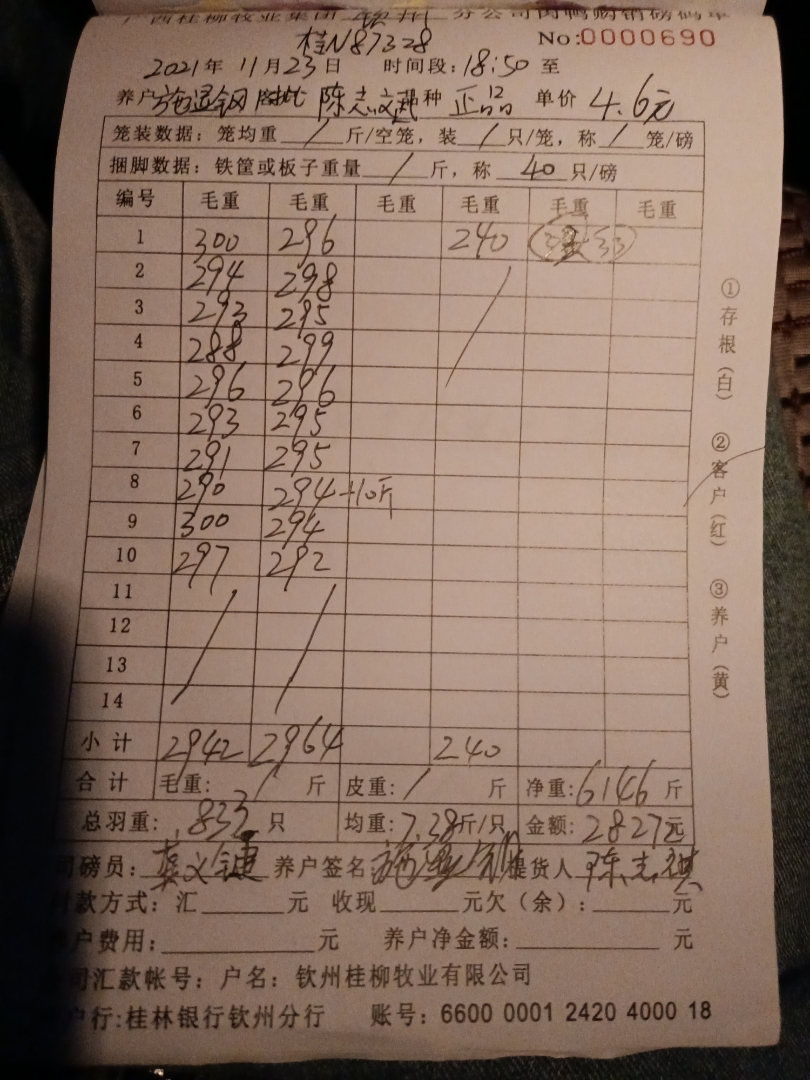 广西桂柳牧业集团 钦州 分公司肉鸭购销磅码单
桂N87328 No:0000690
2021年 11月23日 时间段:18:50 至
养户 施 钢 客批 陈志 品种 正品 12 单价 4.6元
笼装数据: 笼均重 / 斤/空笼, 装 / 只/笼, 称 / 笼/磅
捆脚数据: 铁筐或板子重量 / 斤, 称 40 只/磅
编号 毛重 毛重 毛重 毛重 毛重 毛重
1 300 296 240
2 294 298 /
3 293 295
4 288 299
5 296 296
6 293 295
7 291 295
8 290 294 +10斤
9 300 294
10 297 292
11 / /
12
13
14
小计 2942 2964 240
合计 毛重: / 斤 皮重: / 斤 净重: 6146 斤
总羽重: 833 只 均重: 7.38斤/只 金额: 2827元
司磅员: 养户签名 施 提货人 陈志
付款方式: 汇 元 收现 元欠(余): 元
养户费用: 元 养户净金额: 元
公司汇款帐号: 户名: 钦州桂柳牧业有限公司
开户行:桂林银行钦州分行 账号: 6600 0001 2420 4000 18
①存根(白) ②客户(红) ③养户(黄)